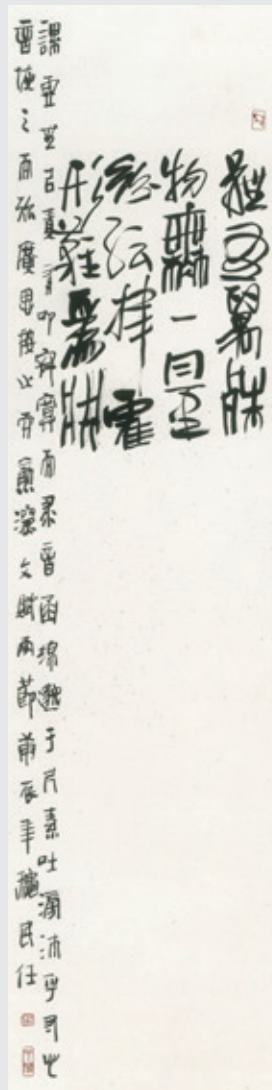 體有萬殊
物無一量
紛紜揮霍
形難為狀
課虛無以責有叩寂寞而求音函緜邈于尺素吐滂沛乎寸心
言恢之而弥廣思按之而愈深文賦兩節庚辰年民任